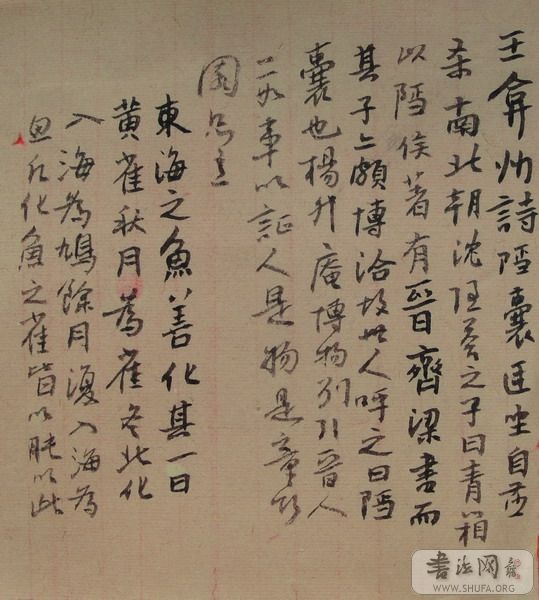 王弇州詩陋囊匡坐自
南北朝沈之子曰青箱
以陋侯著有晉齊梁書而
其子亦頗博洽故世人呼之曰陋
囊也楊升庵博物引晉人
二如事以証人是物是章
園
東海之魚善化其一曰
黃雀秋月為雀冬北化
入海為鳩餘月復入海為
魚凡化魚之雀皆以以此
書法网
WWW.SHUFA.ORG